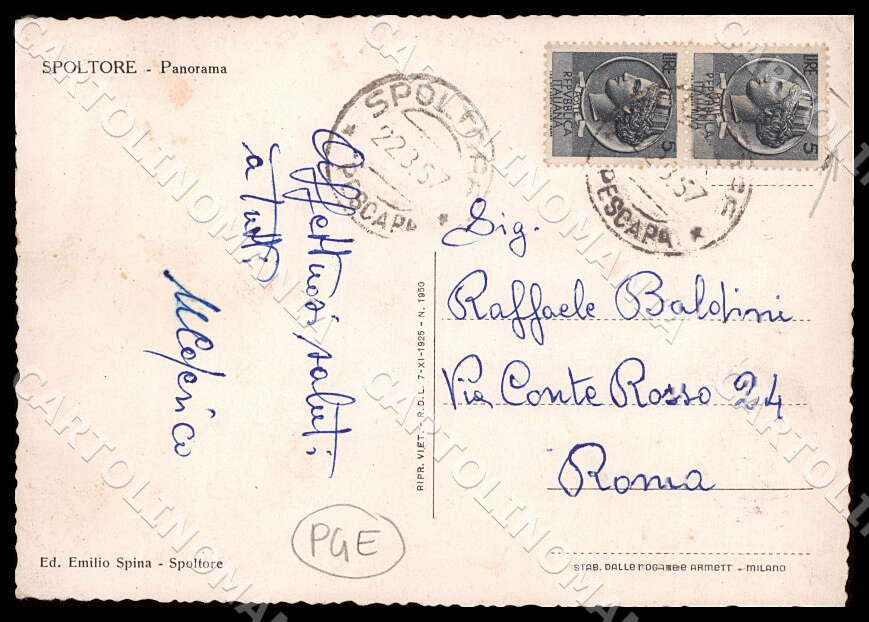 SPOLTORE - Panorama
SPOLTORE
22.3.57
* PESCARA *
LIRE 5
REPVBBLICA
ITALIANA
LIRE 5
REPVBBLICA
ITALIANA
3.57
PESCARA *
Affettuosi saluti
a tutti
Sig.
Raffaele Baldini
Via Conte Rosso 24
Roma
RIPR. VIET. - R.D.L. 7-XI-1925 - N. 1950
PGE
Ed. Emilio Spina - Spoltore
STAB. DALLE ARMETT - MILANO
CARTOLINOMANIA